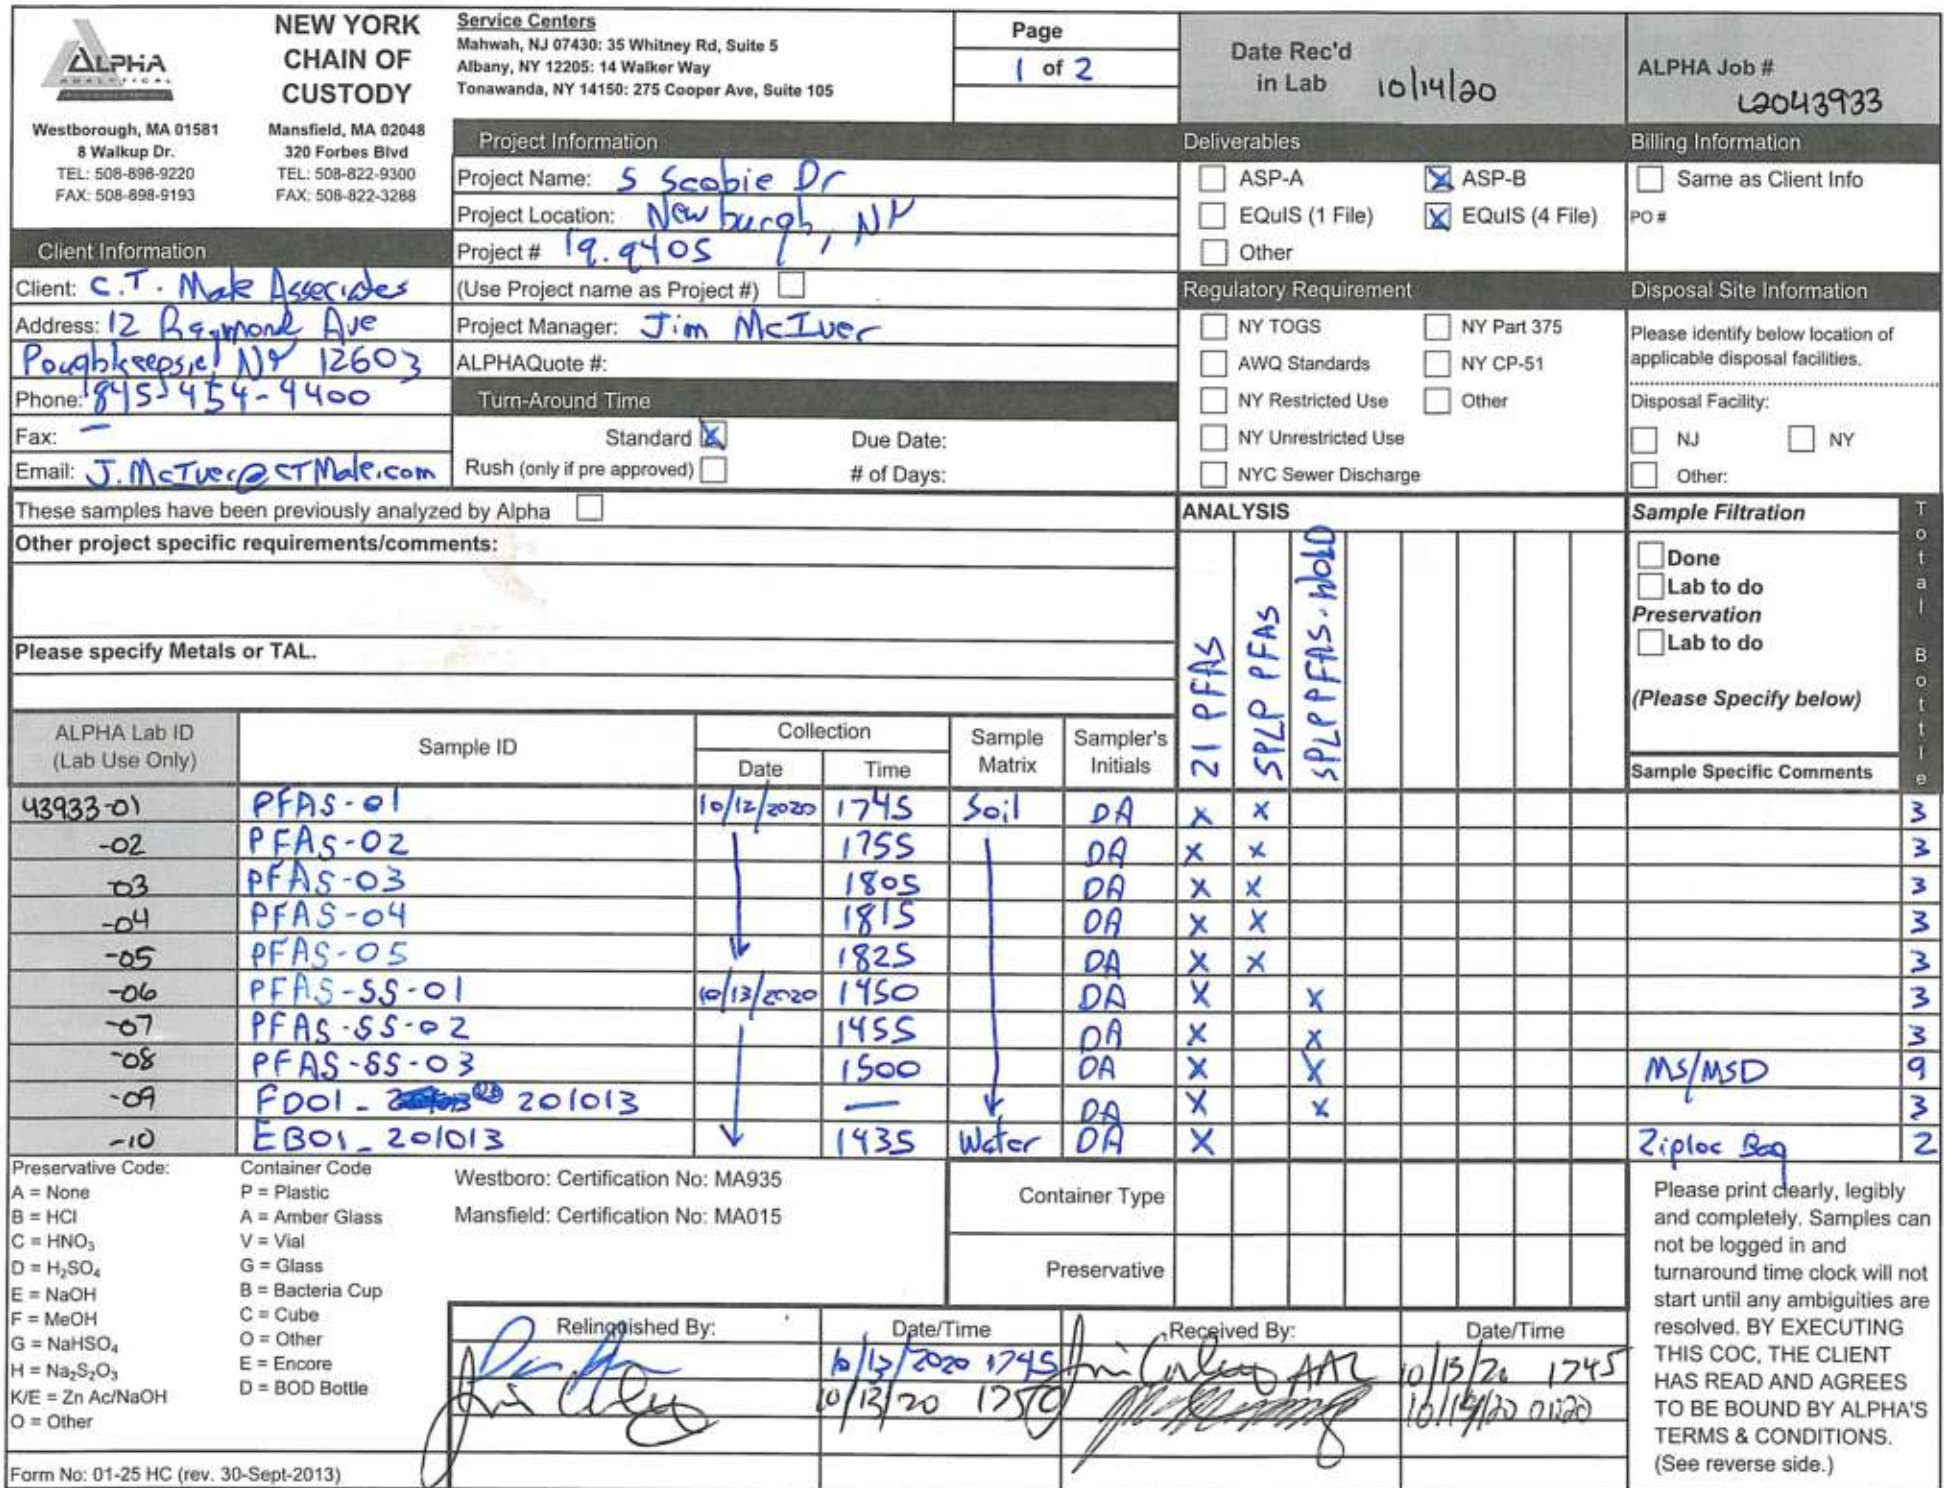 ALPHA
ANALYTICAL
Westborough, MA 01581
8 Walkup Dr.
TEL: 508-898-9220
FAX: 508-898-9193
NEW YORK
CHAIN OF
CUSTODY
Mansfield, MA 02048
320 Forbes Blvd
TEL: 508-822-9300
FAX: 508-822-3288
Service Centers
Mahwah, NJ 07430: 35 Whitney Rd, Suite 5
Albany, NY 12205: 14 Walker Way
Tonawanda, NY 14150: 275 Cooper Ave, Suite 105
Page
1 of 2
Date Rec'd
in Lab 10/14/20
ALPHA Job #
L2043933
Client Information
Client: C.T. Male Associates
Address: 12 Raymond Ave
Poughkeepsie, NY 12603
Phone: 845-454-4400
Fax: —
Email: J.McIver@CTMale.com
Project Information
Project Name: S Scobie Dr
Project Location: Newburgh, NY
Project # 19.9405
(Use Project name as Project #)
Project Manager: Jim McIver
ALPHAQuote #:
Turn-Around Time
Standard X Due Date:
Rush (only if pre approved) # of Days:
Deliverables
ASP-A X ASP-B
EQuIS (1 File) X EQuIS (4 File)
Other
Regulatory Requirement
NY TOGS NY Part 375
AWQ Standards NY CP-51
NY Restricted Use Other
NY Unrestricted Use
NYC Sewer Discharge
Billing Information
Same as Client Info
PO #
Disposal Site Information
Please identify below location of
applicable disposal facilities.
Disposal Facility:
NJ NY
Other:
These samples have been previously analyzed by Alpha
Other project specific requirements/comments:
Please specify Metals or TAL.
ANALYSIS
21 PFAS
SPLP PFAS
SPLP PFAS-HOLD
Sample Filtration
Done
Lab to do
Preservation
Lab to do
(Please Specify below)
Total Bottle
ALPHA Lab ID
(Lab Use Only)
Sample ID
Collection
Date Time
Sample
Matrix
Sampler's
Initials
Sample Specific Comments
43933-01 PFAS-01 10/12/2020 1745 Soil DA X X 3
-02 PFAS-02 1755 DA X X 3
-03 PFAS-03 1805 DA X X 3
-04 PFAS-04 1815 DA X X 3
-05 PFAS-05 1825 DA X X 3
-06 PFAS-SS-01 10/13/2020 1450 DA X X 3
-07 PFAS-SS-02 1455 DA X X 3
-08 PFAS-SS-03 1500 DA X X MS/MSD 9
-09 FD01_ 201013 — DA X X 3
-10 EB01_201013 1435 Water DA X Ziploc Bag 2
Preservative Code:
A = None
B = HCl
C = HNO₃
D = H₂SO₄
E = NaOH
F = MeOH
G = NaHSO₄
H = Na₂S₂O₃
K/E = Zn Ac/NaOH
O = Other
Container Code
P = Plastic
A = Amber Glass
V = Vial
G = Glass
B = Bacteria Cup
C = Cube
O = Other
E = Encore
D = BOD Bottle
Westboro: Certification No: MA935
Mansfield: Certification No: MA015
Container Type
Preservative
Relinquished By: Date/Time Received By: Date/Time
10/13/2020 1745 AAL 10/13/20 1745
10/13/20 1750 10/14/20 0120
Please print clearly, legibly
and completely. Samples can
not be logged in and
turnaround time clock will not
start until any ambiguities are
resolved. BY EXECUTING
THIS COC, THE CLIENT
HAS READ AND AGREES
TO BE BOUND BY ALPHA'S
TERMS & CONDITIONS.
(See reverse side.)
Form No: 01-25 HC (rev. 30-Sept-2013)